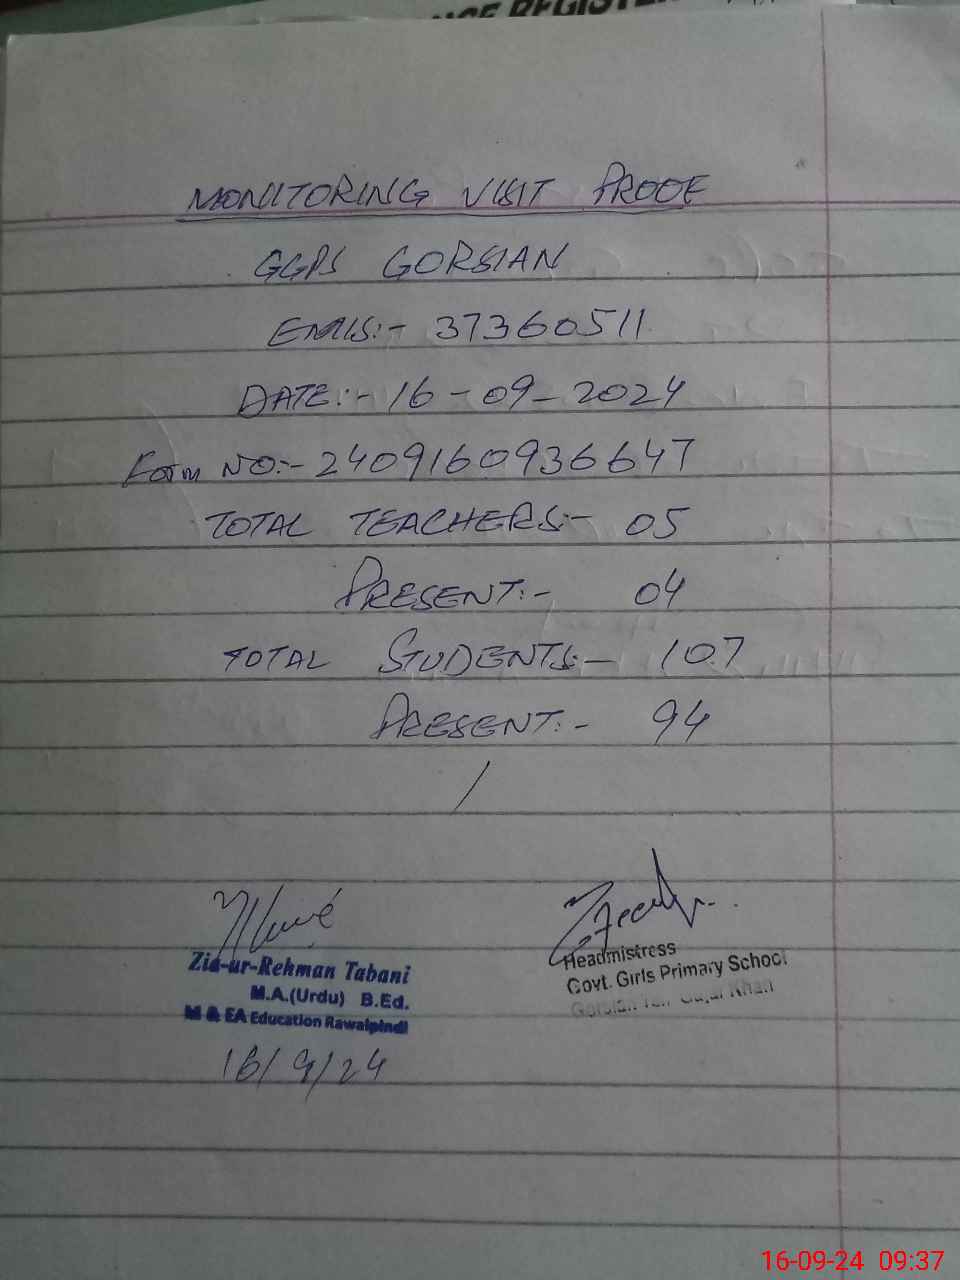 MONITORING VISIT PROOF
GGPS GORSIAN
EMIS:- 37360511
DATE:- 16-09-2024
Form NO:- 240916093664​7
TOTAL TEACHERS:- 05
PRESENT:- 04
TOTAL STUDENTS:- 107
PRESENT:- 94
/
Zia-ur-Rehman Tabani
M.A.(Urdu) B.Ed.
M & EA Education Rawalpindi
16/9/24
Headmistress
Govt. Girls Primary School
Gorsian Teh Gujar Khan
16-09-24 09:37